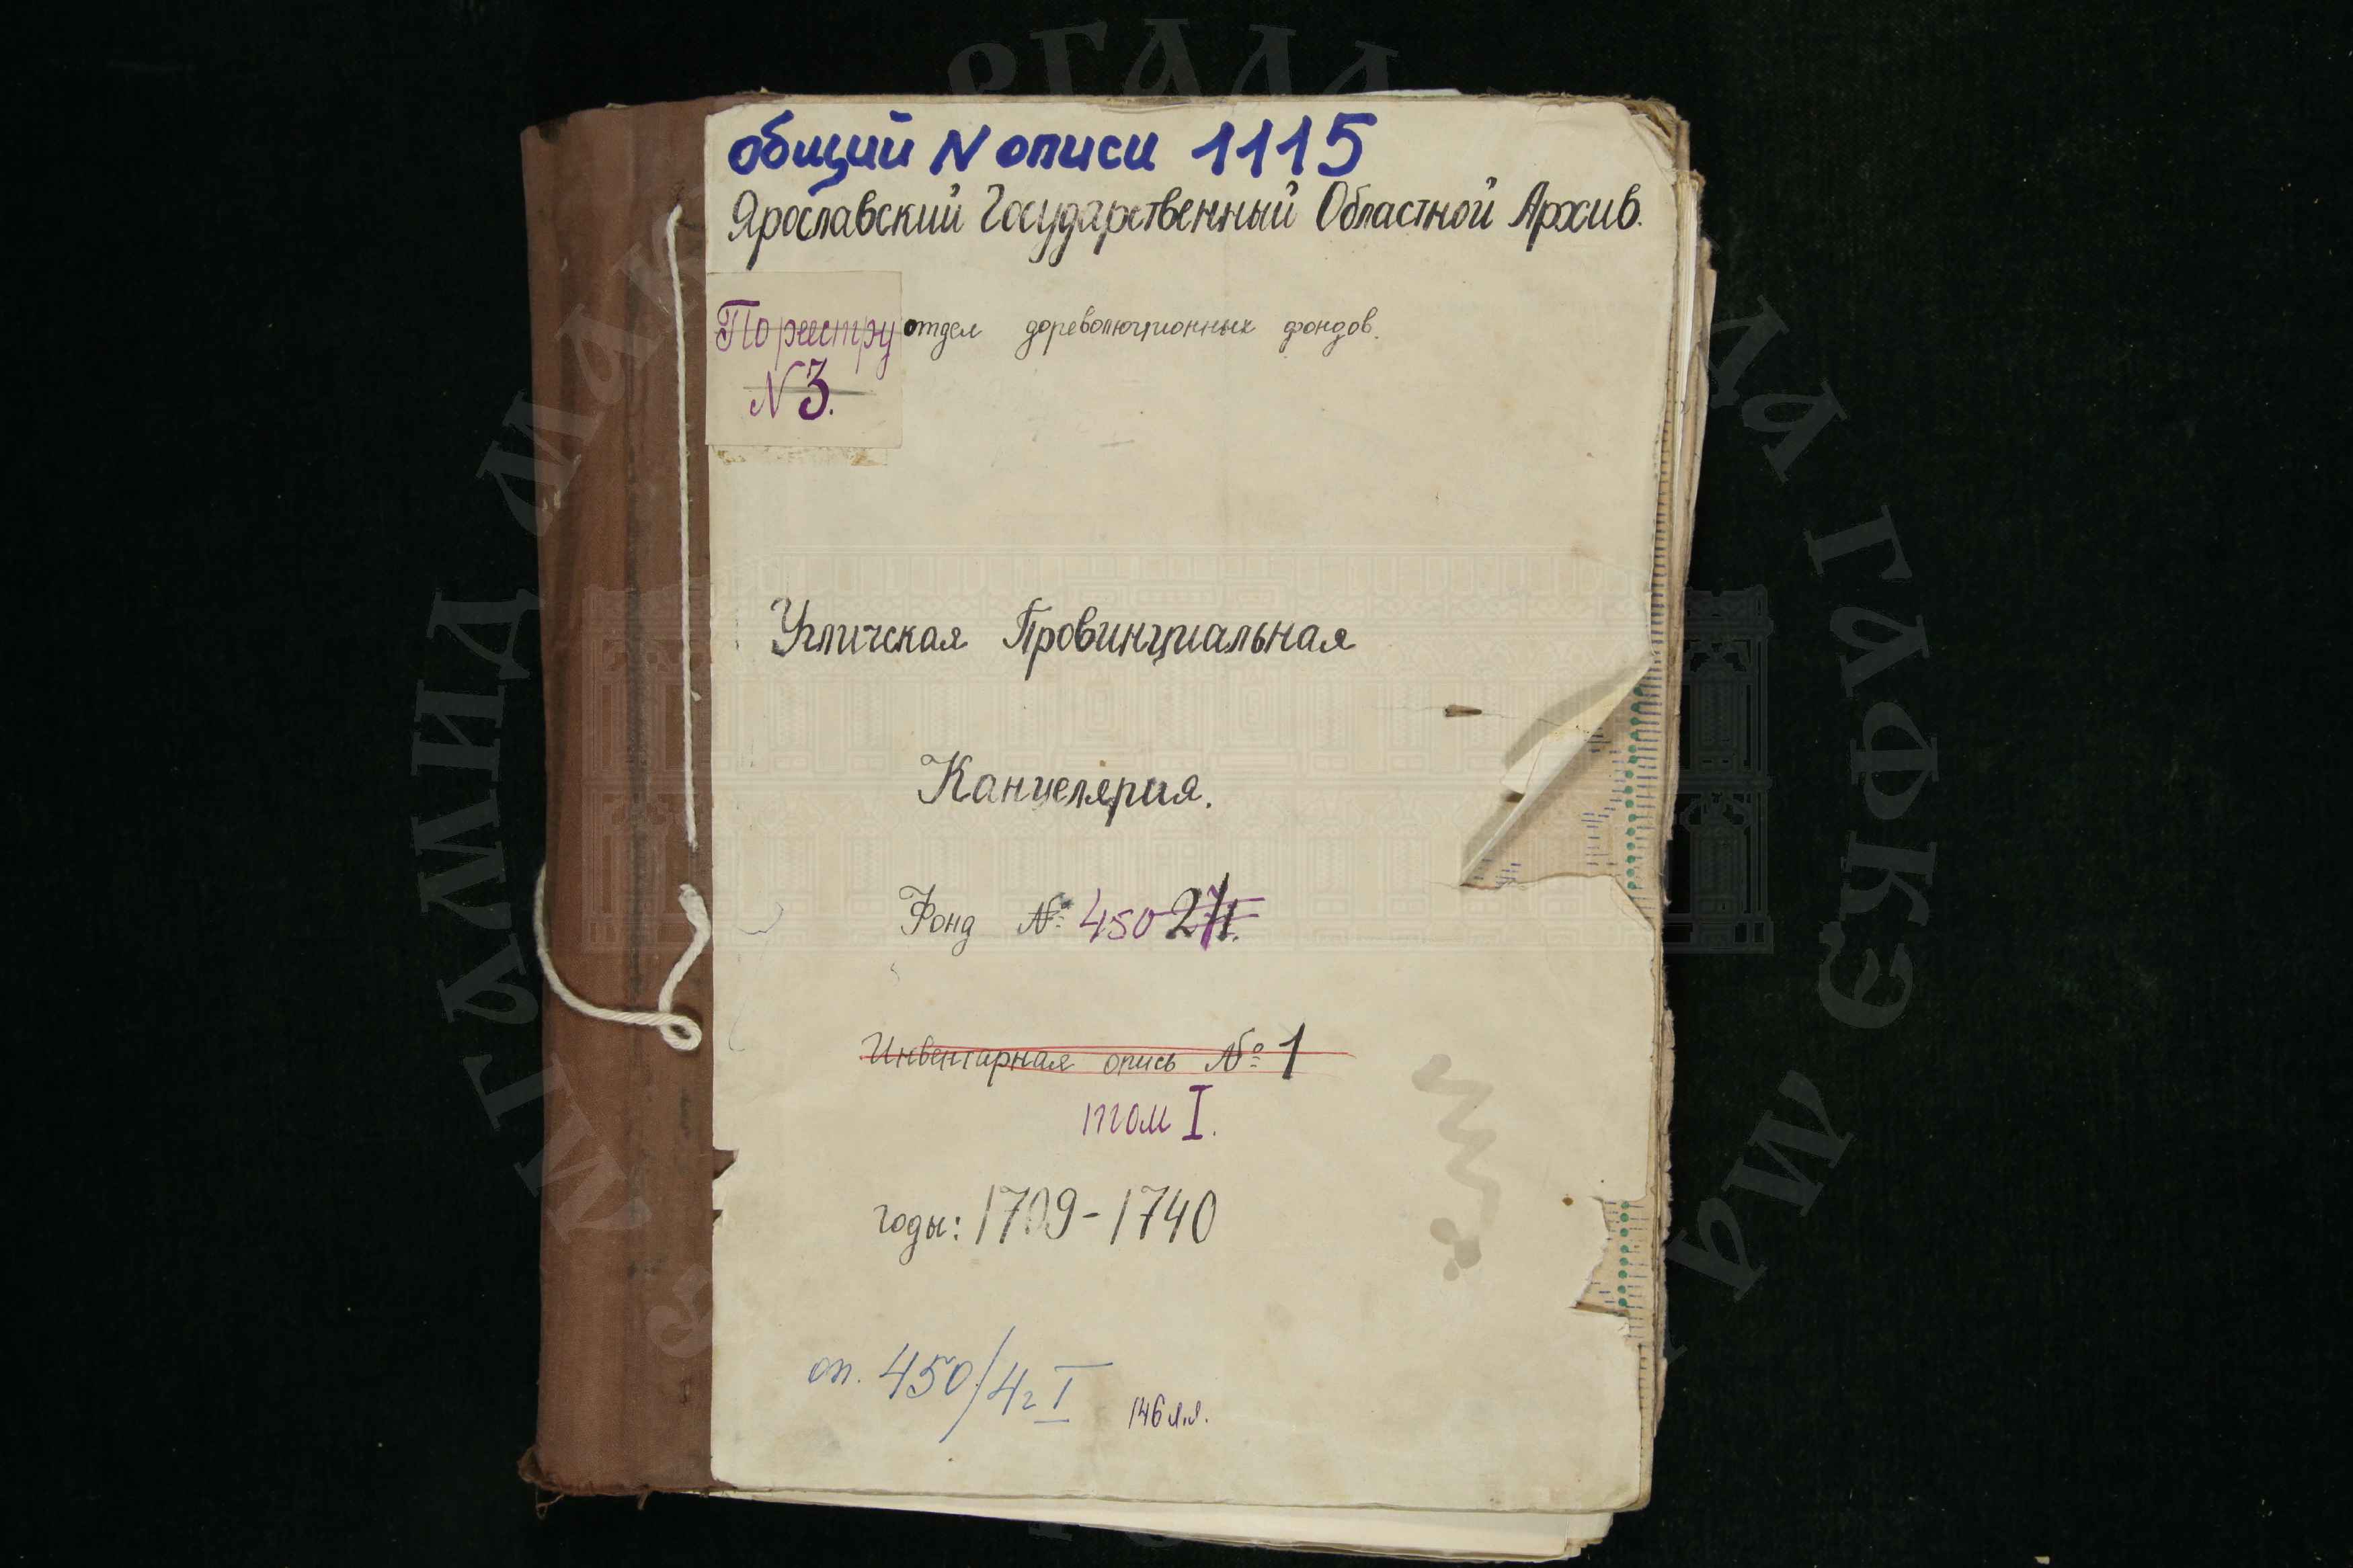 общий N описи 1115
Ярославский Государственный Областной Архив.
По реестру
отдел дореволюционных фондов.
N 3.
Угличская Провинциальная
Канцелярия.
Фонд № 450
Инвентарная опись № 1
том I.
годы: 1709-1740
оп. 450/4г I
146 л.л.